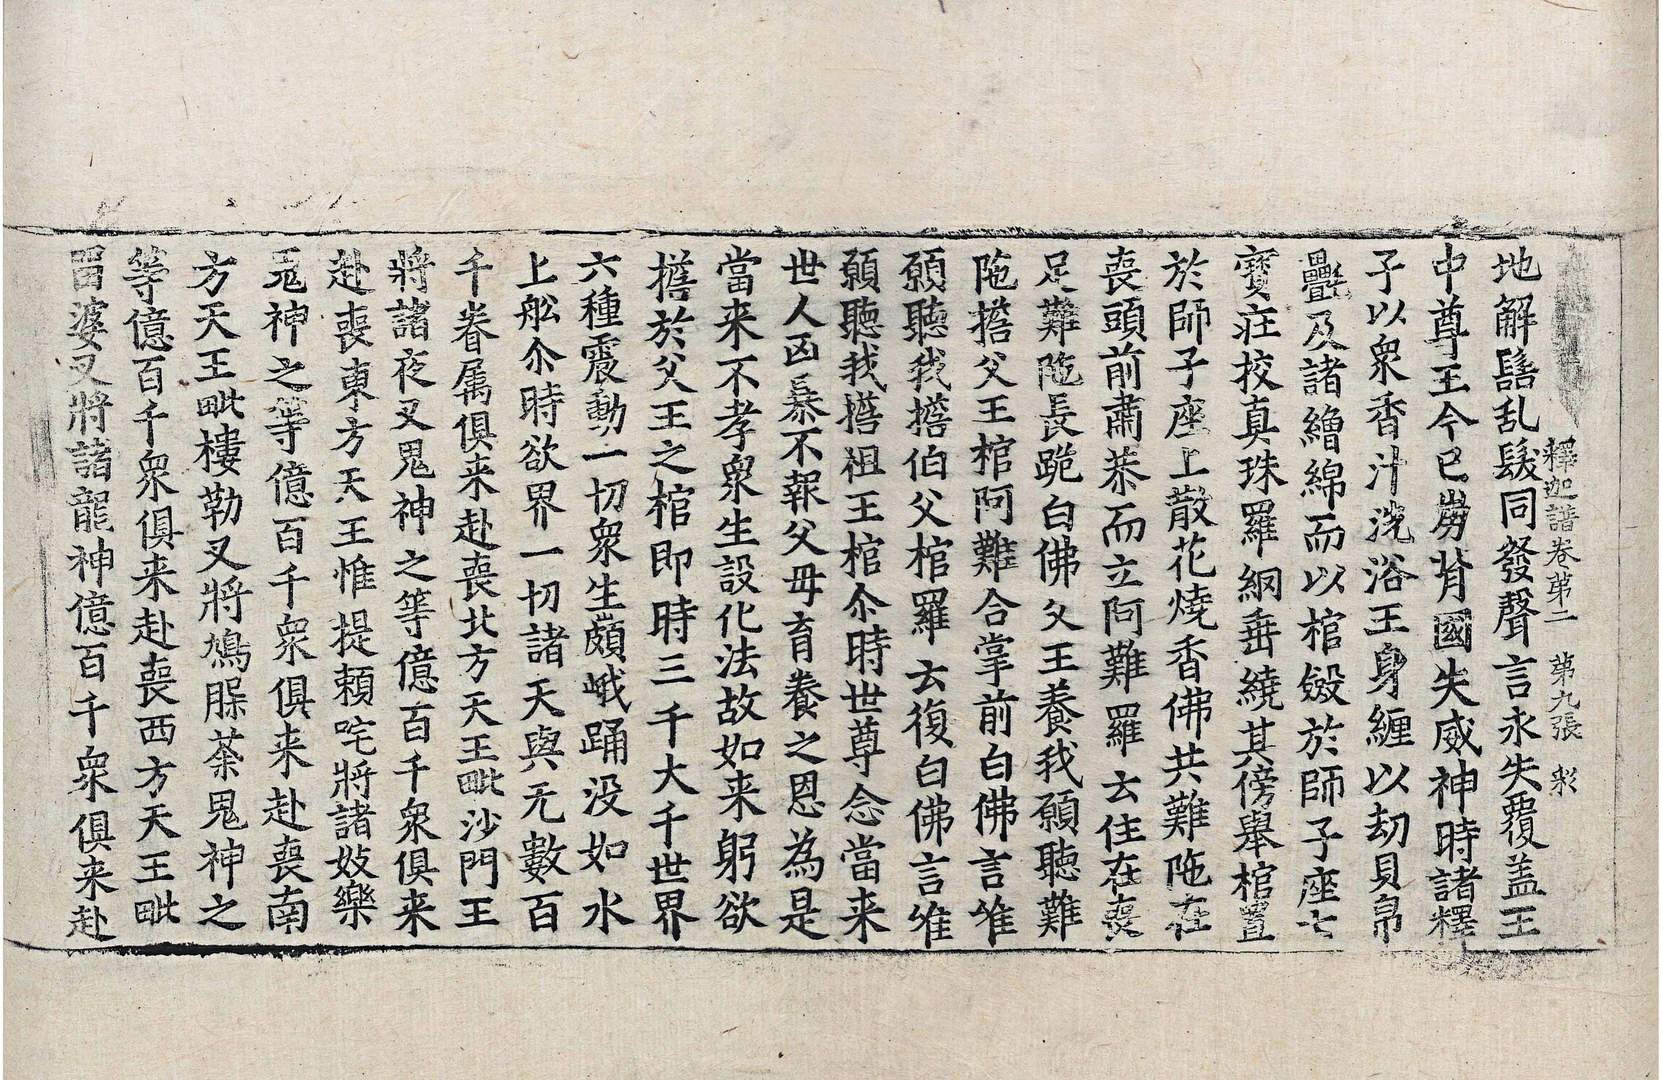 釋迦譜卷第二 第九張 彩
地解髻乱髮同發聲言永失覆盖王
中尊王今已崩背國失威神時諸釋
子以衆香汁洗浴王身纏以劫貝帛
㲲及諸繒綿而以棺斂於師子座七
寶庄挍真珠羅網垂繞其傍舉棺置
於師子座上散花燒香佛共難陁在
喪頭前肅恭而立阿難羅云住在喪
足難陁長跪白佛父王養我願聽難
陁擔父王棺阿難合掌前白佛言唯
願聽我擔伯父棺羅云復白佛言唯
願聽我擔祖王棺尒時世尊念當来
世人凶暴不報父毋育養之恩為是
當来不孝衆生設化法故如来躬欲
擔於父王之棺即時三千大千世界
六種震動一切衆生䫌峨踊没如水
上舩尒時欲界一切諸天與无數百
千眷属俱来赴喪北方天王毗沙門王
將諸夜叉鬼神之等億百千衆俱来
赴喪東方天王惟提賴吒將諸妓樂
鬼神之等億百千衆俱来赴喪南
方天王毗樓勒叉將鳩䐢荼鬼神之
等億百千衆俱来赴喪西方天王毗
留婆叉將諸龍神億百千衆俱来赴